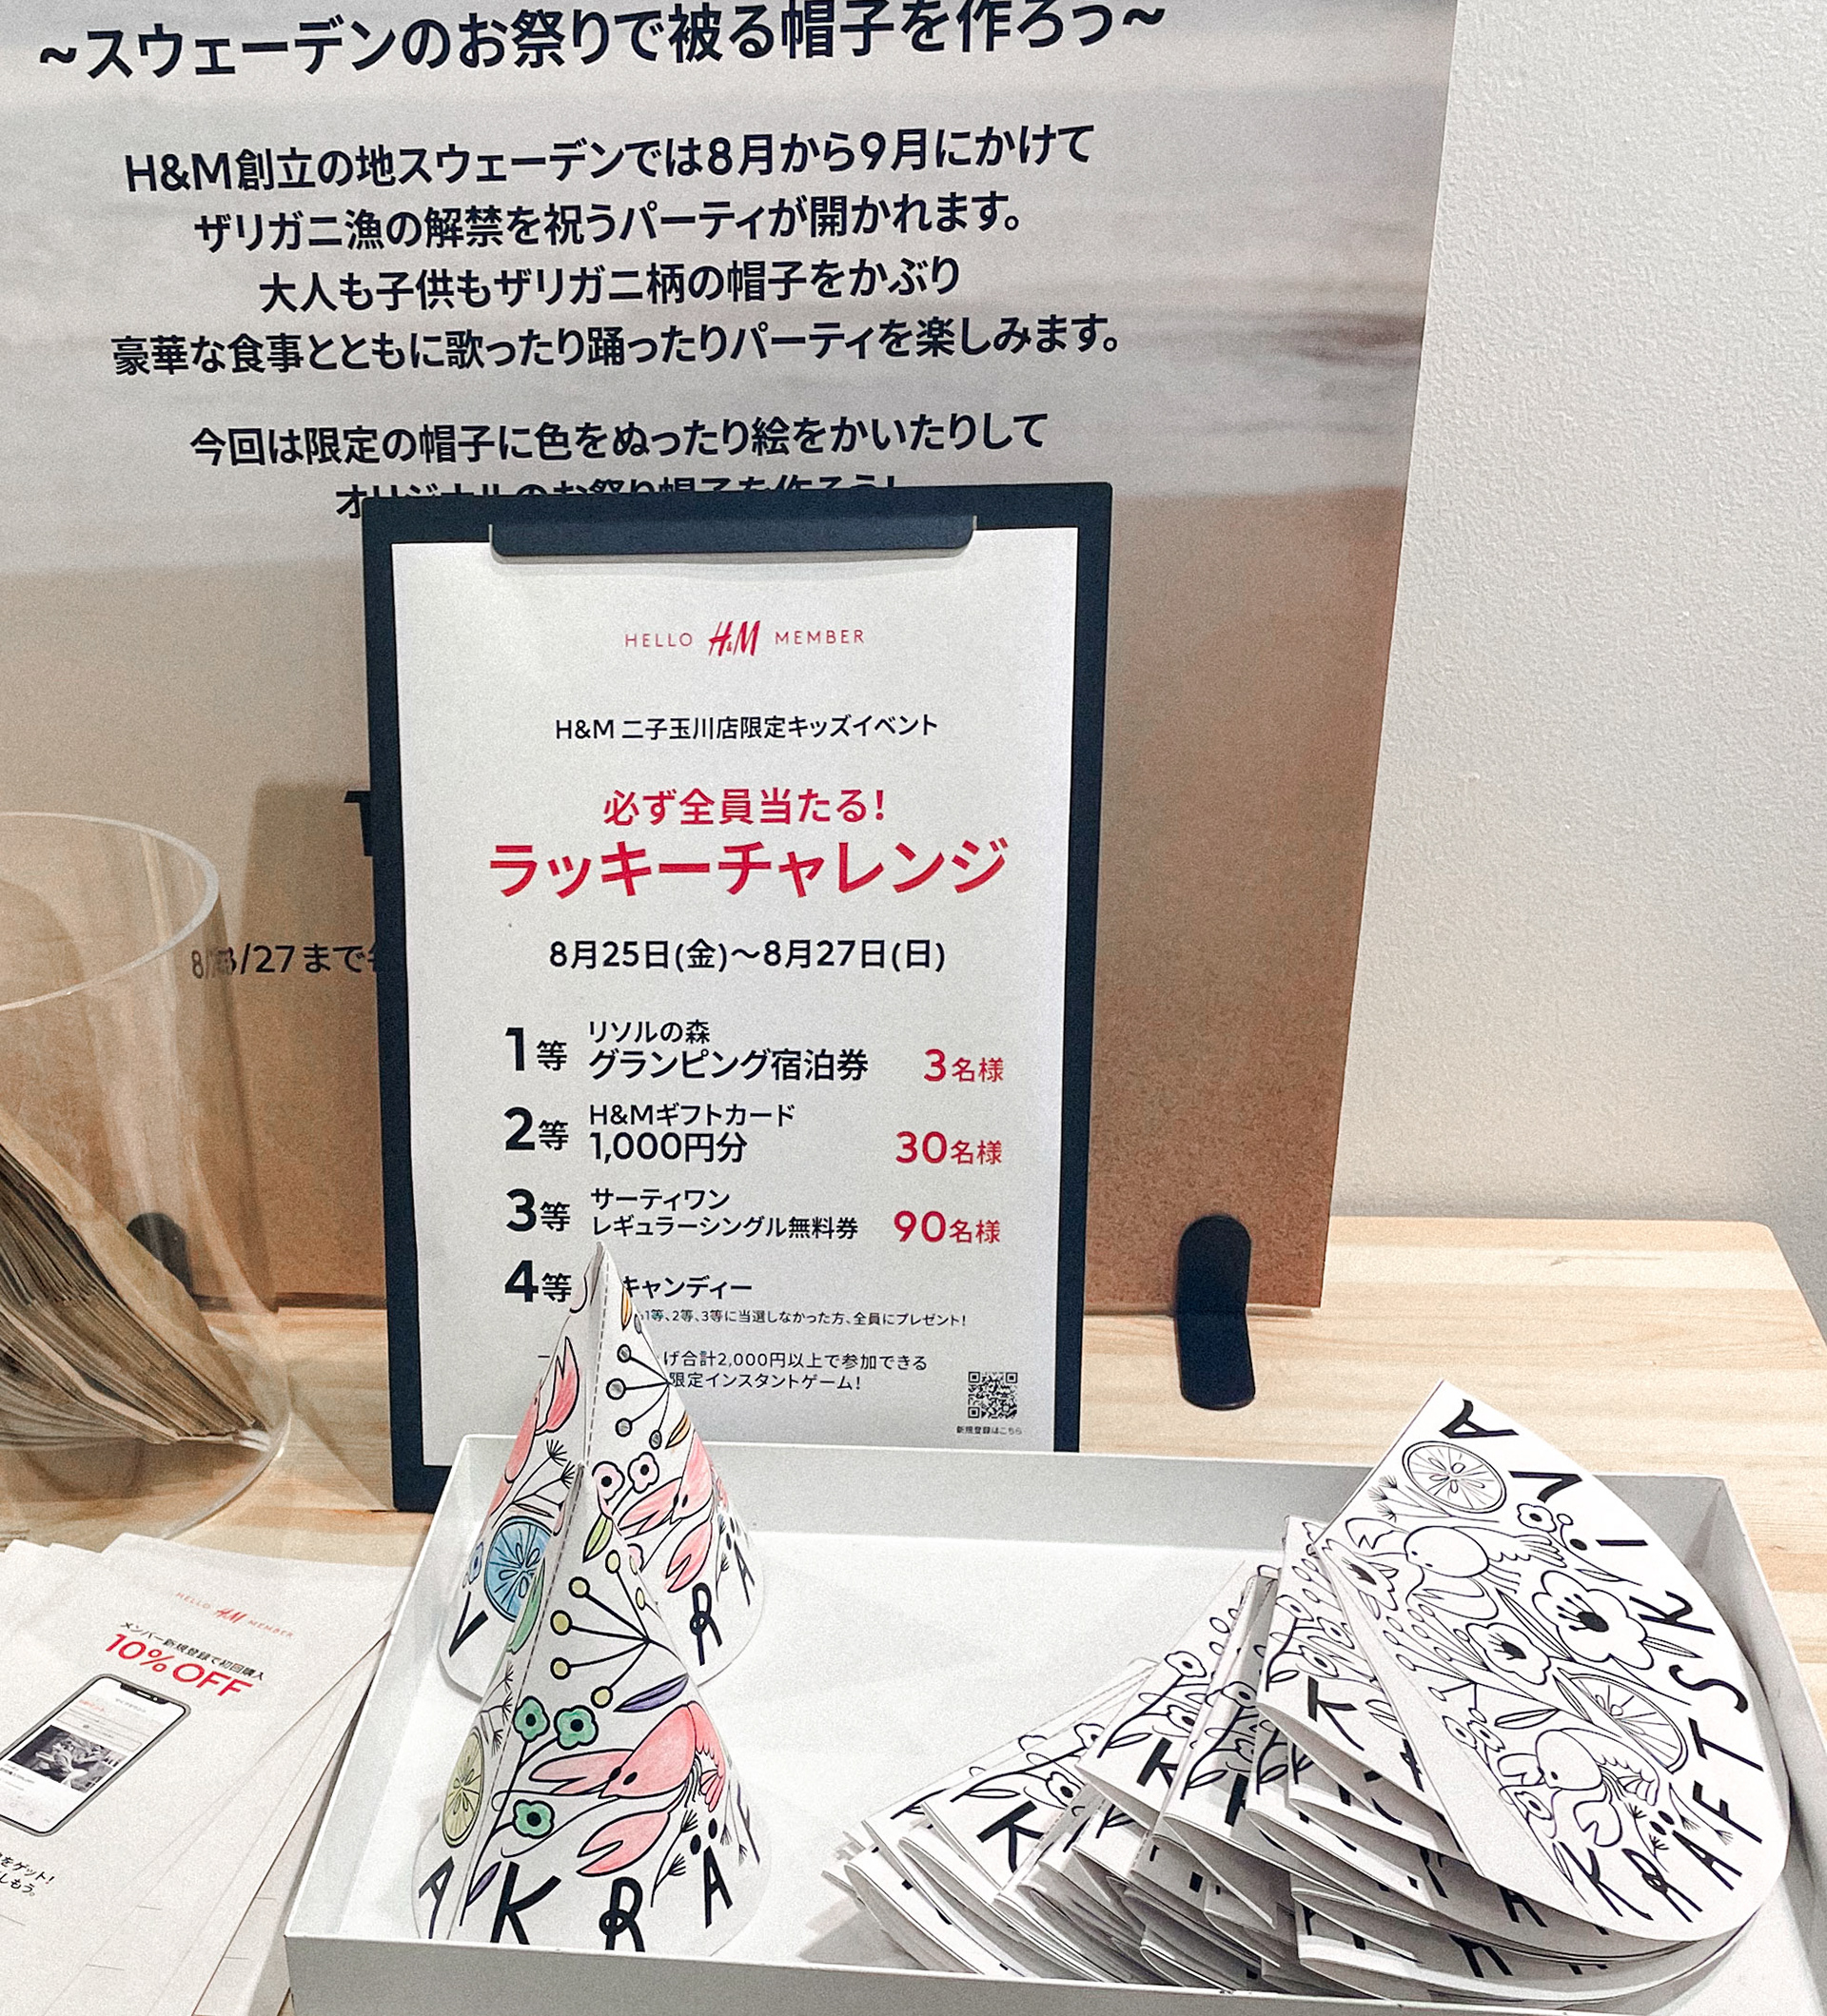 ~スウェーデンのお祭りで被る帽子を作ろう~
H&M創立の地スウェーデンでは8月から9月にかけて
ザリガニ漁の解禁を祝うパーティが開かれます。
大人も子供もザリガニ柄の帽子をかぶり
豪華な食事とともに歌ったり踊ったりパーティを楽しみます。
今回は限定の帽子に色をぬったり絵をかいたりして
オリジナルのお祭り帽子を作ろう!
8/27まで
HELLO H&M MEMBER
H&M 二子玉川店限定キッズイベント
必ず全員当たる!
ラッキーチャレンジ
8月25日(金)～8月27日(日)
1等 リソルの森
グランピング宿泊券 3名様
2等 H&Mギフトカード
1,000円分 30名様
3等 サーティワン
レギュラーシングル無料券 90名様
4等 キャンディー
1等、2等、3等に当選しなかった方、全員にプレゼント!
げ合計2,000円以上で参加できる
限定インスタントゲーム!
新規登録はこちら
HELLO H&M MEMBER
メンバー新規登録で初回購入
10%OFF
をゲット!
しもう。
V RÄ
A KRÄ
KRÄFTSKIVA